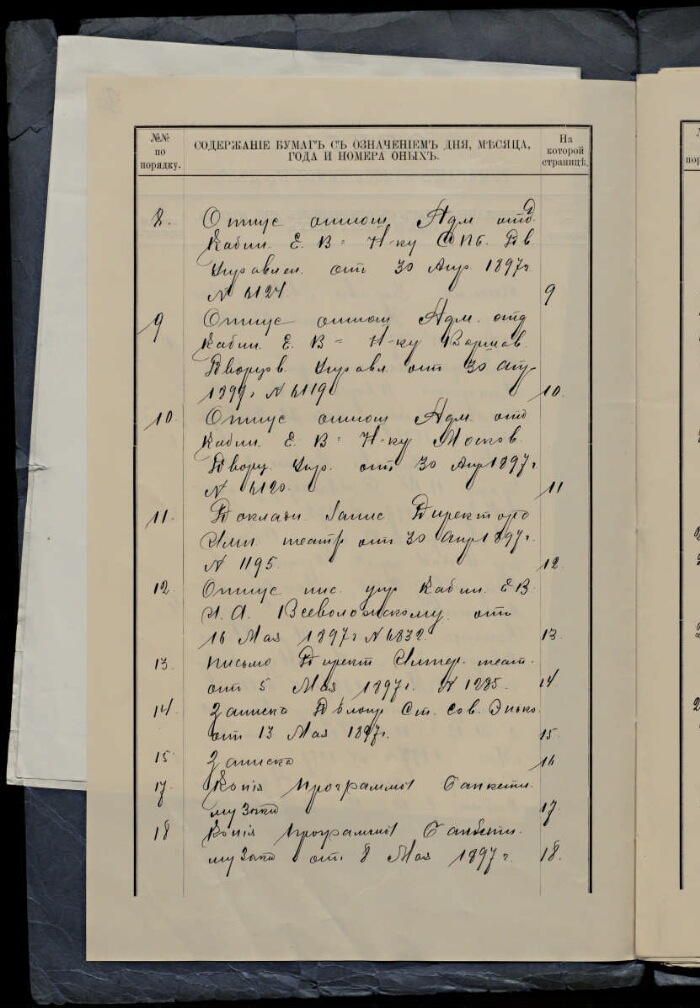 №№ по порядку.
СОДЕРЖАНІЕ БУМАГЪ СЪ ОЗНАЧЕНІЕМЪ ДНЯ, МѢСЯЦА, ГОДА И НОМЕРА ОНЫХЪ.
На которой страницѣ.
8. Отпус отнош Адм отд
Кабин. Е. В= Н-ку СПб. Дв.
Управлен. от 30 Апр. 1897 г
№ 4124. 9
9 Отпус отнош Адм. отд
Кабин. Е. В= Н-ку Варшав
Дворцов. Управл. от 30 апр
1897 г № 4119. 10.
10. Отпус отнош Адм. отд
Кабин. Е. В= Н-ку Москов.
Дворц. Упр. от 30 Апр 1897 г
№ 4120. 11
11. Доклади Запис Директора
Имп. театр от 30 апр 1897 г.
№ 1195. 12.
12 Отпус пис. упр Кабин. Е В.
И. А. Всеволожскому от
16 Мая 1897 г № 4832. 13.
13. письмо Директ Импер. театр.
от 5 Мая 1897 г. № 1285. 14
14. Записка Дѣлопр Ст. Сов.
от 13 Мая 1897 г. 15.
15 Записка 16
17 Копія программы банкетн.
музыки 17.
18 Копія программы банкетн.
музыки от 8 Мая 1897 г. 18.